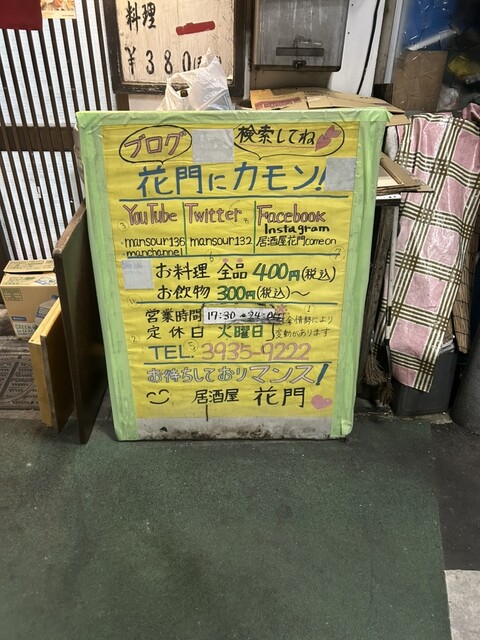 料理
¥380
ブログ 検索してね
花門にカモン!
YouTube Twitter Facebook
Instagram
mansour136 mansour132 居酒屋花門comeon
manchannel
お料理 全品 400円(税込)
お飲物 300円(税込)～
営業時間 17:30
定休日 火曜日 変動があります
TEL: 3935-9222
お待ちしておりマンス!
居酒屋 花門